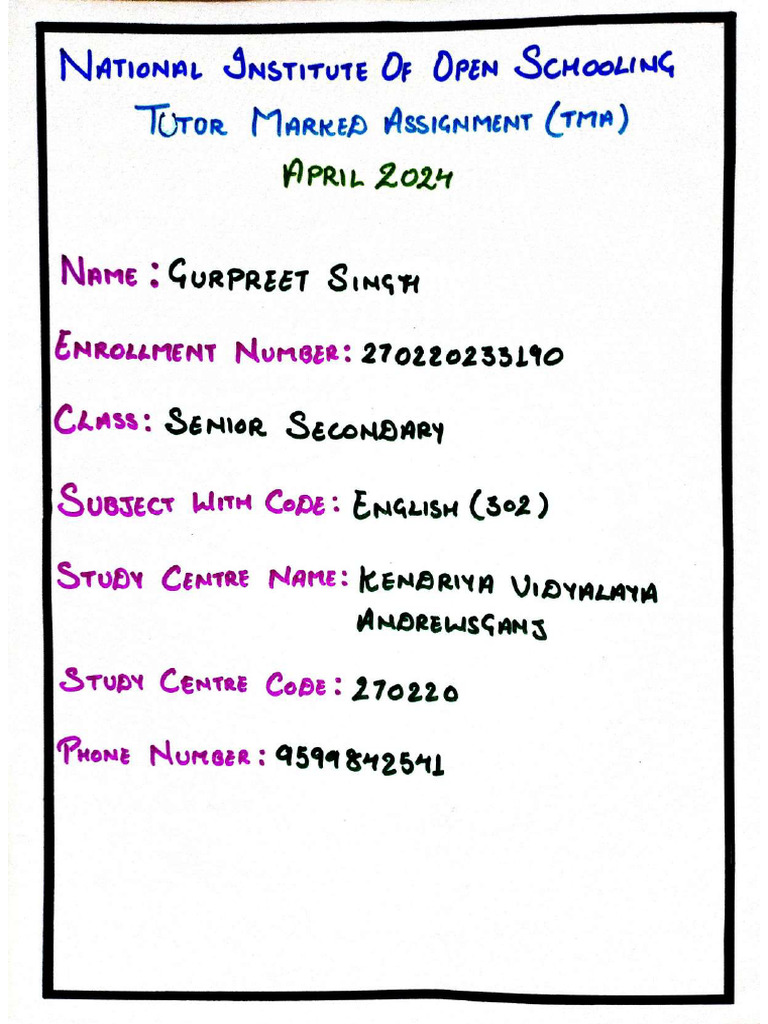 NATIONAL INSTITUTE OF OPEN SCHOOLING
TUTOR MARKED ASSIGNMENT (TMA)
APRIL 2024
NAME: GURPREET SINGH
ENROLLMENT NUMBER: 270220233190
CLASS: SENIOR SECONDARY
SUBJECT WITH CODE: ENGLISH (302)
STUDY CENTRE NAME: KENDRIYA VIDYALAYA
ANDREWSGANJ
STUDY CENTRE CODE: 270220
PHONE NUMBER: 9599842541